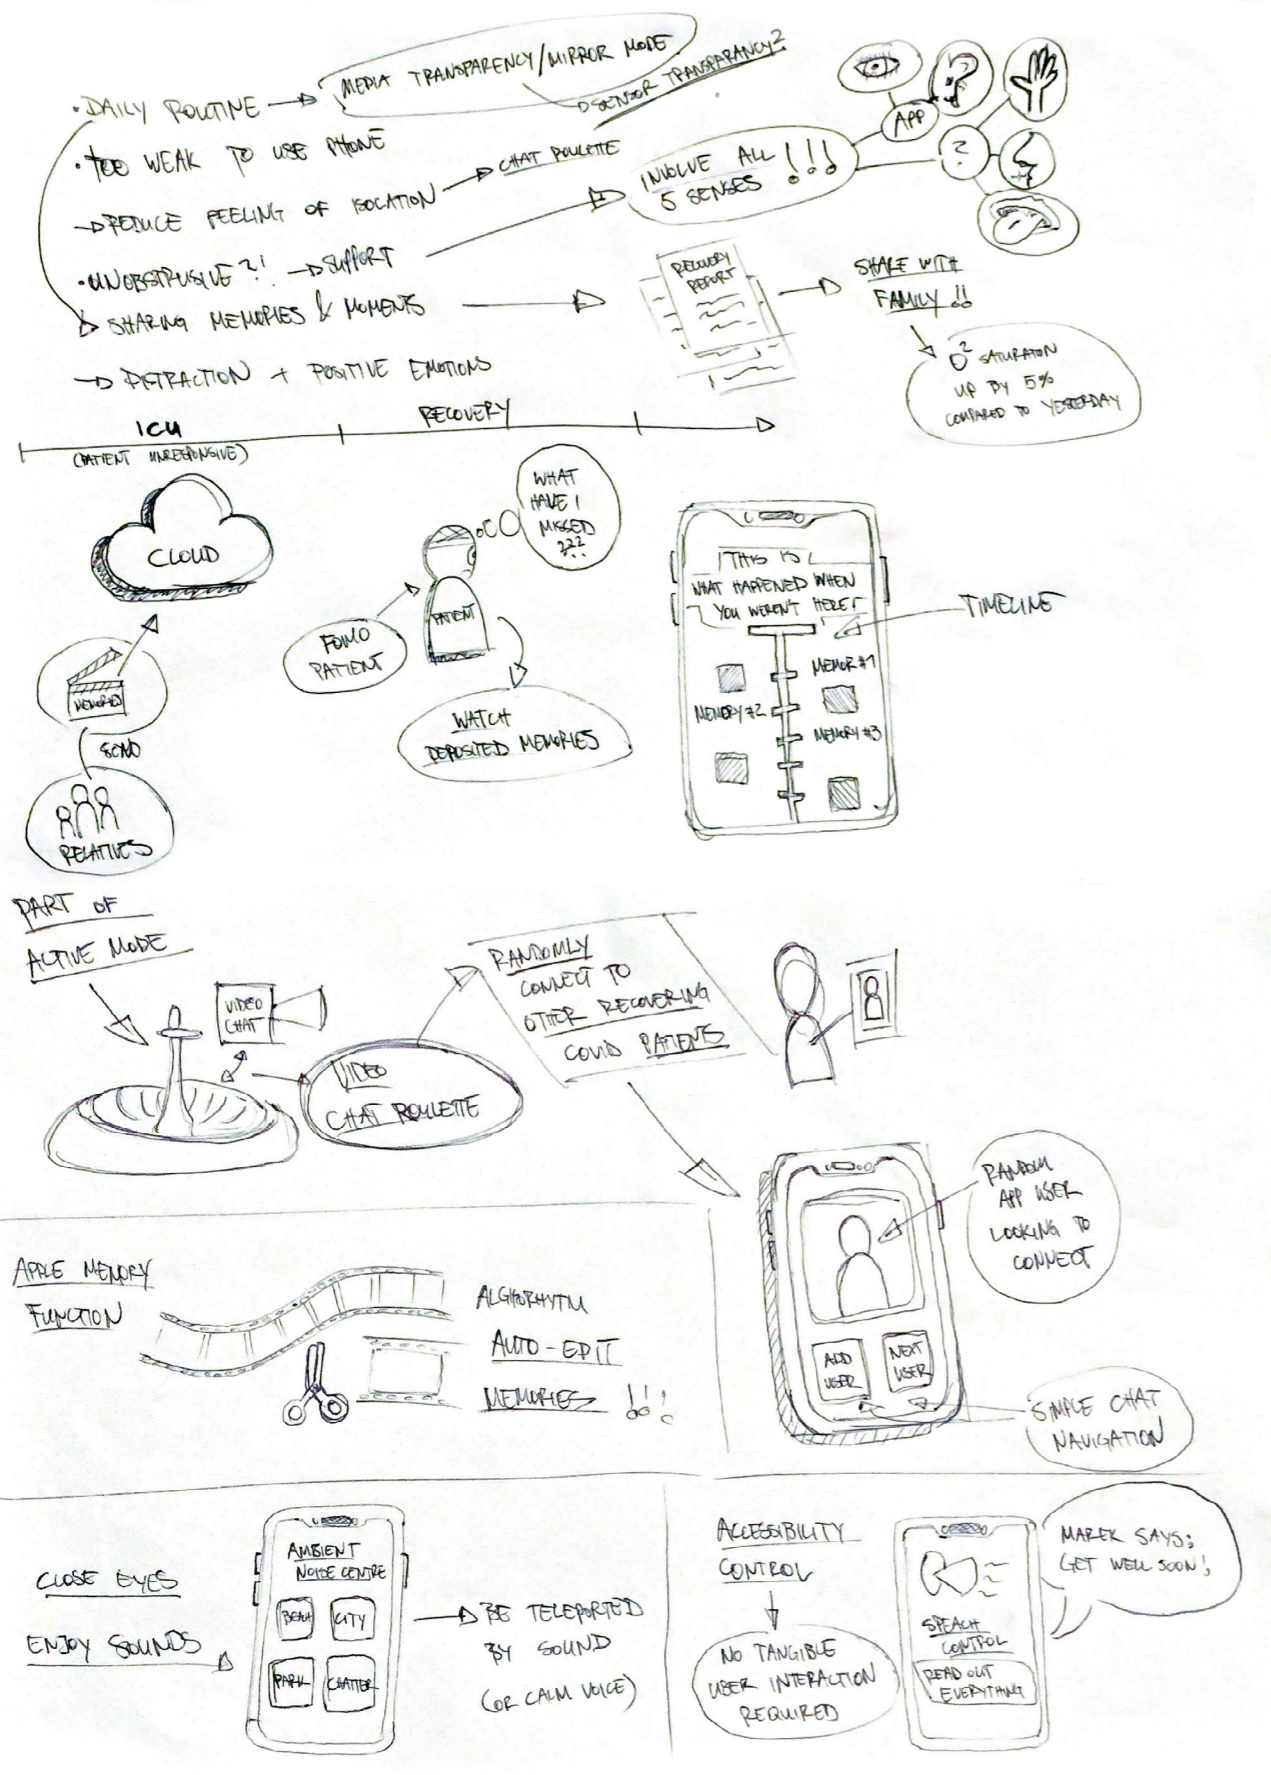 MEDIA TRANSPARENCY/MIRROR MODE
→ SENSOR TRANSPARANCY?
• DAILY ROUTINE →
• TOO WEAK TO USE PHONE
→ REDUCE FEELING OF ISOLATION → CHAT ROULETTE
• UNOBSTRUSIVE?! → SUPPORT
SHARING MEMORIES & MOMENTS
→ DISTRACTION + POSITIVE EMOTIONS
INVOLVE ALL
5 SENSES !!!
APP
?
RECOVERY
REPORT
SHARE WITH
FAMILY !!
O² SATURATON
UP BY 5%
COMPARED TO YESTERDAY
ICU
(PATIENT UNRESPONSIVE)
RECOVERY
CLOUD
MEMORIES
SEND
RELATIVES
FOMO
PATIENT
PATIENT
WHAT
HAVE I
MISSED
???
WATCH
DEPOSITED MEMORIES
THIS IS
WHAT HAPPENED WHEN
YOU WEREN'T HERE!
MEMOR #1
MEMORY #2
MEMORY #3
TIMELINE
PART OF
ACTIVE MODE
VIDEO
CHAT
VIDEO
CHAT ROULETTE
RANDOMLY
CONNECT TO
OTHER RECOVERING
COVID PATIENTS
RANDOM
APP USER
LOOKING TO
CONNECT
ADD
USER
NEXT
USER
SIMPLE CHAT
NAVIGATION
APPLE MEMORY
FUNCTION
ALGHORHYTM
AUTO-EDIT
MEMORIES !!!
CLOSE EYES
ENJOY SOUNDS
AMBIENT
NOISE CENTRE
BEACH
CITY
PARK
CHATTER
→ BE TELEPORTED
BY SOUND
(OR CALM VOICE)
ACCESSIBILITY
CONTROL
NO TANGIBLE
USER INTERACTION
REQUIRED
SPEACH
CONTROL
READ OUT
EVERYTHING
MAREK SAYS:
GET WELL SOON!